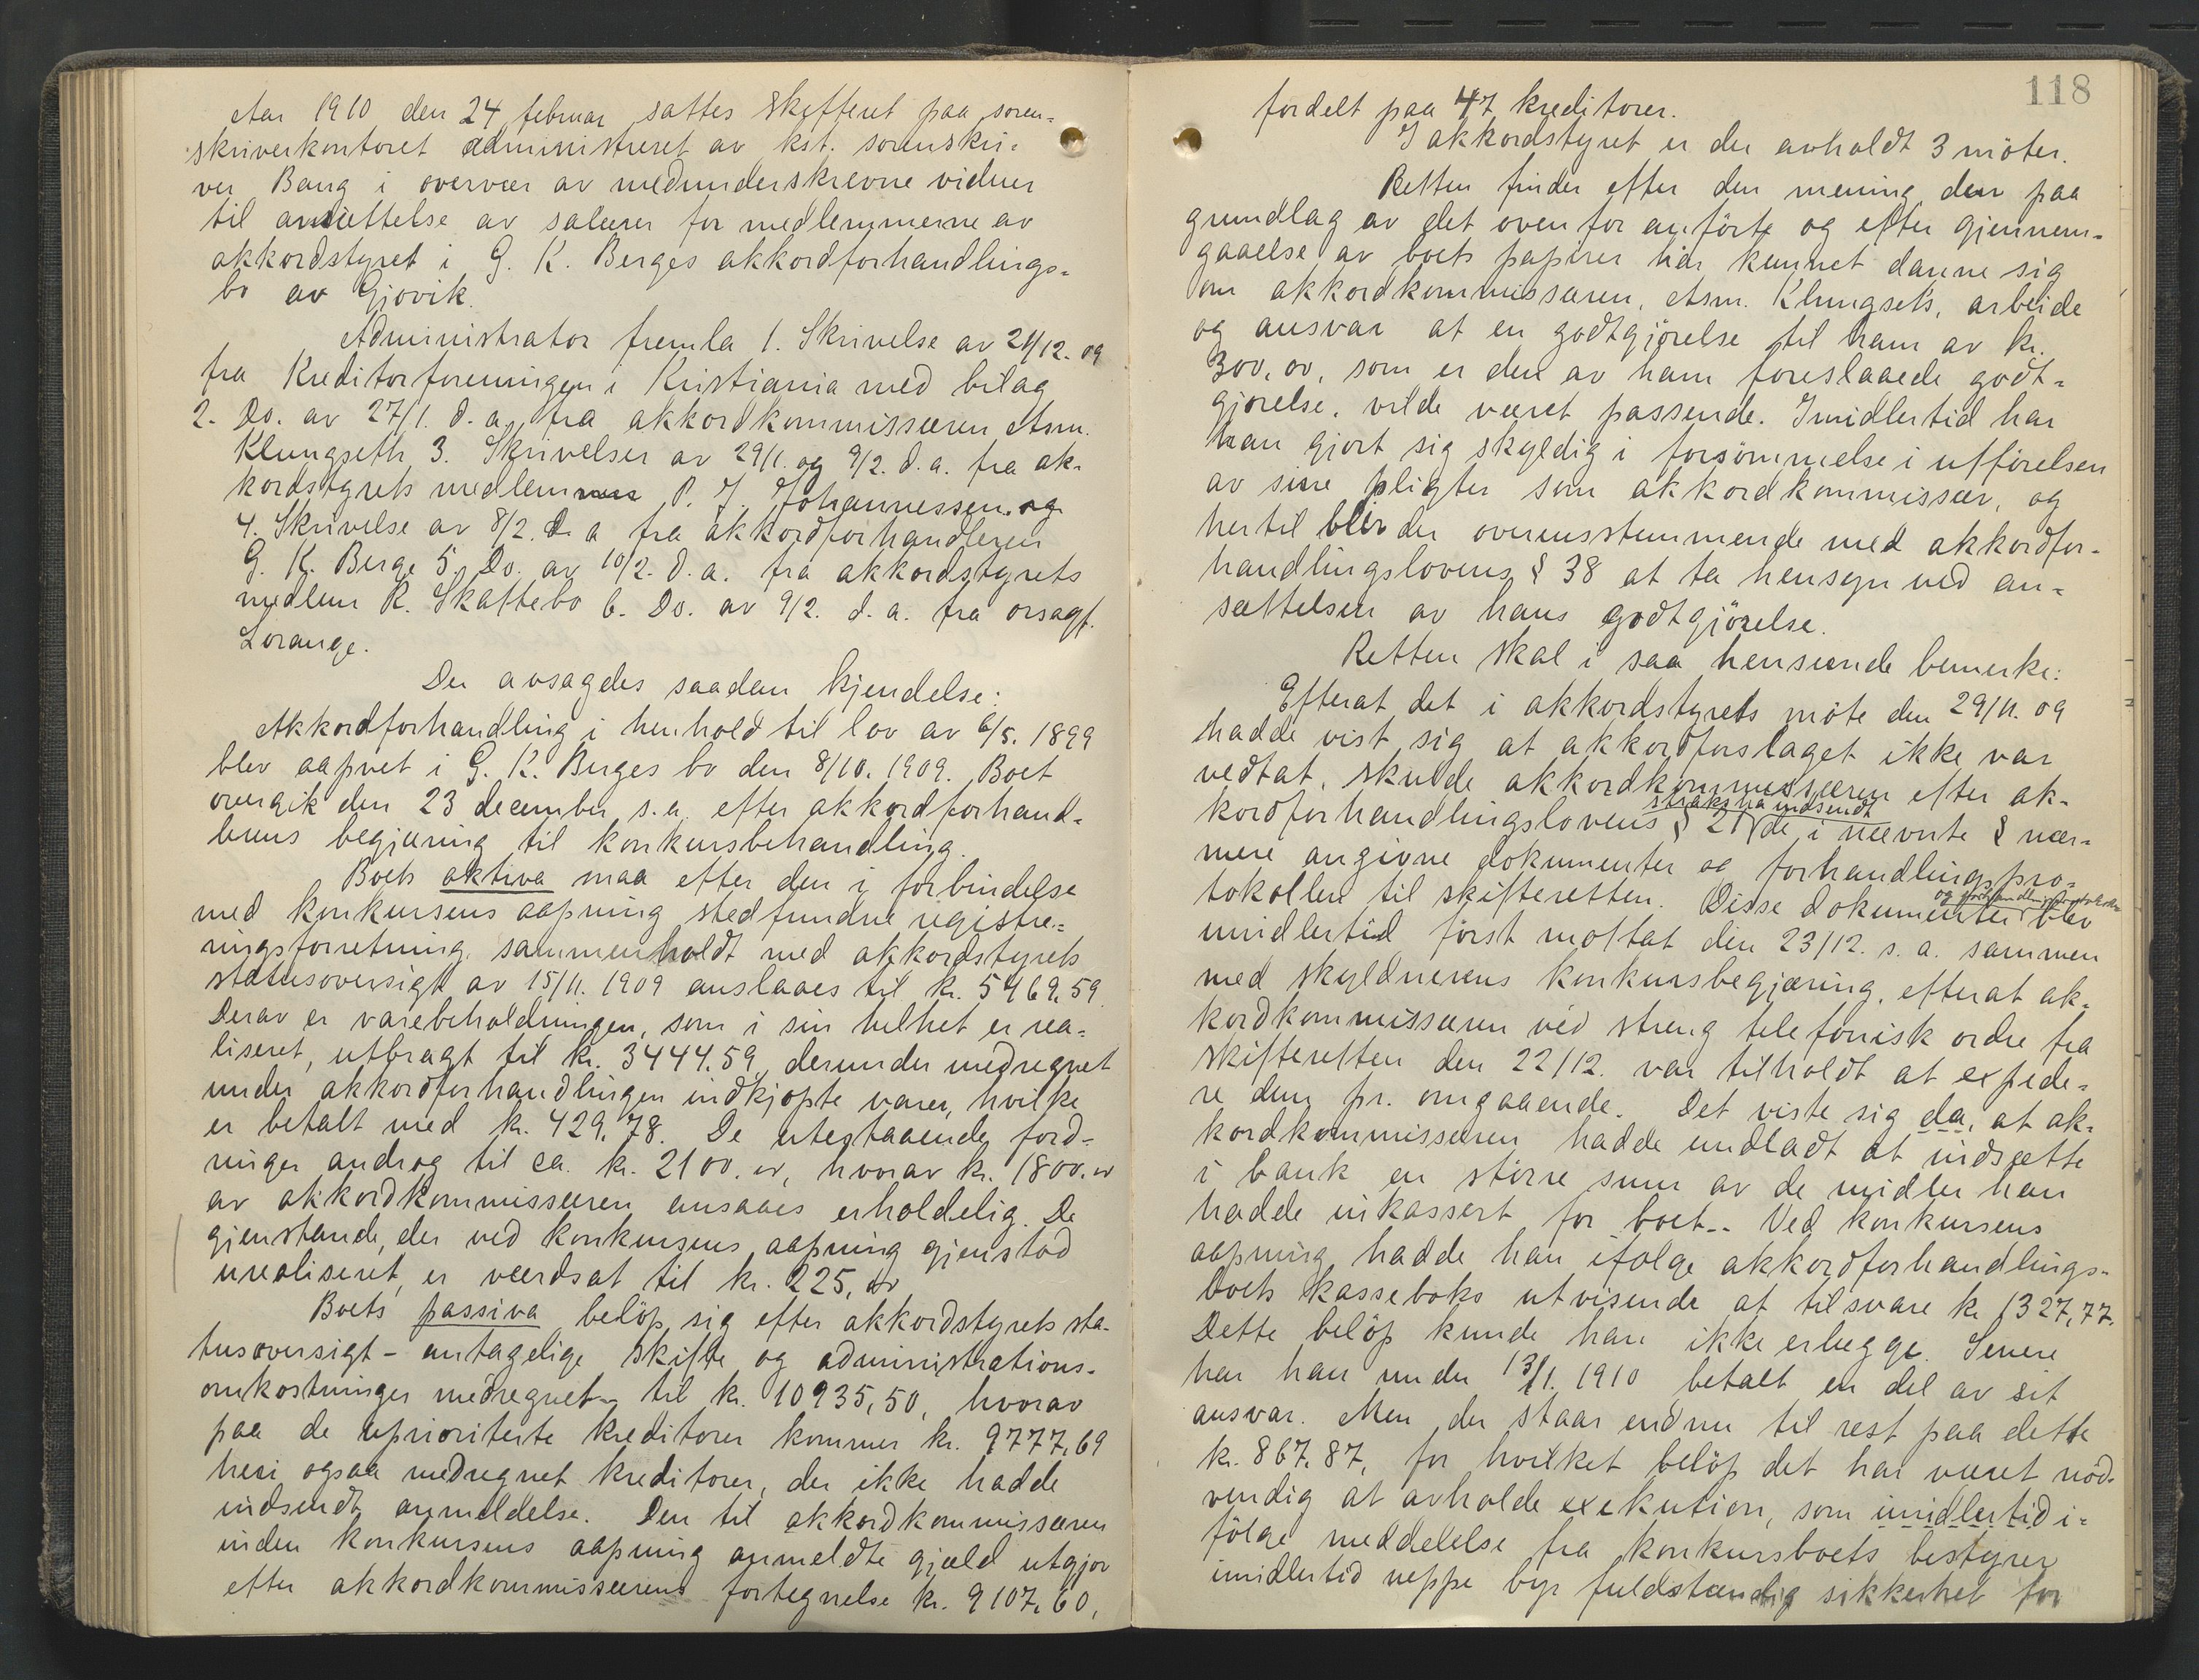 Aar 1910 den 24 februar sattes skifteret paa soren-
skriverkontoret administreret av kst. sorenskri-
ver Bang i overvær av medunderskrevne vidner
til ansættelse av salærer for medlemmerne av
akkordstyret i G. K. Berges akkordforhandlings-
bo av Gjøvik.
Administrator fremla 1. Skrivelse av 21/12. 09
fra Kreditorforeningen i Kristiania med bilag
2. Do. av 27/1. d. a. fra akkordkommissæren Asm.
Klungseth 3. Skrivelser av 29/1. og 9/2. d. a. fra ak-
kordstyrets medlem P. J. Johannessen og
4. Skrivelse av 8/2. d. a fra akkordforhandleren
G. K. Berge 5. Do. av 10/2. d. a. fra akkordstyrets
medlem R. Skattebo 6. Do. av 9/2. d. a. fra orsagf.
Lorange.
Der avsagdes saadan kjendelse:
Akkordforhandling i henhold til lov av 6/5. 1899
blev aapnet i G. K. Berges bo den 8/10. 1909. Boet
overgik den 23 december s. a. efter akkordforhand-
lerens begjæring til konkursbehandling.
Boets aktiva maa efter den i forbindelse
med konkursens aapning stedfundne registre-
ringsforretning sammenholdt med akkordstyrets
statusoversigt av 15/11. 1909 anslaaes til kr. 5469,59.
Derav er varebeholdningen, som i sin helhet er rea-
liseret, utbragt til kr. 3444.59, derunder medregnet
under akkordforhandlingen indkjøpte varer, hvilke
er betalt med kr. 429,78. De utestaaende ford-
ringer androg til ca. kr. 2100.00, hvorav kr. 1800.00
av akkordkommissæren ansaaes erholdelig. De
gjenstande, der ved konkursens aapning gjenstod
urealiseret, er værdsat til kr. 225,00
Boets passiva beløp sig efter akkordstyrets sta-
tusoversigt - antagelige skifte og administrations-
omkostninger medregnet - til kr. 10935,50, hvorav
paa de uprioriterte kreditorer kommer kr. 9777,69
heri ogsaa medregnet kreditorer, der ikke hadde
indsendt anmeldelse. Den til akkordkommissæren
inden konkursens aapning anmeldte gjæld utgjør
efter akkordkommissærens fortegnelse kr. 9107,60,
118
fordelt paa 47 kreditorer.
I akkordstyret er der avholdt 3 møter.
Retten finder efter den mening den paa
grundlag av det ovenfor anførte og efter gjennem-
gaaelse av boets papirer har kunnet danne sig
om akkordkommissæren, Asm. Klungseths, arbeide
og ansvar at en godtgjørelse til ham av kr.
300,00, som er den av ham foreslaaede godt-
gjørelse, vilde været passende. Imidlertid har
han gjort sig skyldig i forsømmelse i utførelsen
av sine pligter som akkordkommissær, og
hertil blir der overensstemmende med akkordfor-
handlingslovens § 38 at ta hensyn ved an-
sættelsen av hans godtgjørelse.
Retten skal i saa henseende bemerke:
Efterat det i akkordstyrets møte den 29/11. 09
hadde vist sig at akkordforslaget ikke var
vedtat, skulde akkordkommissæren efter ak-
straks ha indsendt
kordforhandlingslovens § 21 de i nævnte § nær-
mere angivne dokumenter og forhandlingspro-
tokollen til skifteretten. Disse dokumenter blev
og forhandlingsprotokollen
imidlertid først mottat den 23/12. s. a. sammen
med skyldnerens konkursbegjæring, efterat ak-
kordkommissæren ved streng telefonisk ordre fra
skifteretten den 22/12. var tilholdt at expede-
re dem pr. omgaaende. Det viste sig da, at ak-
kordkommissæren hadde undladt at indsætte
i bank en større sum av de midler han
hadde inkassert for boet. Ved konkursens
aapning hadde han ifølge akkordforhandlings-
boets kasseboks utvisende at tilsvare kr. 1327,77.
Dette beløp kunde han ikke erlægge. Senere
har han under 13/1. 1910 betalt en del av sit
ansvar. Men der staar endnu til rest paa dette
kr. 867,87, for hvilket beløp det har været nød-
vendig at avholde exekution, som imidlertid i-
følge meddelelse fra konkursboets bestyrer
imidlertid neppe byr fuldstændig sikkerhet for